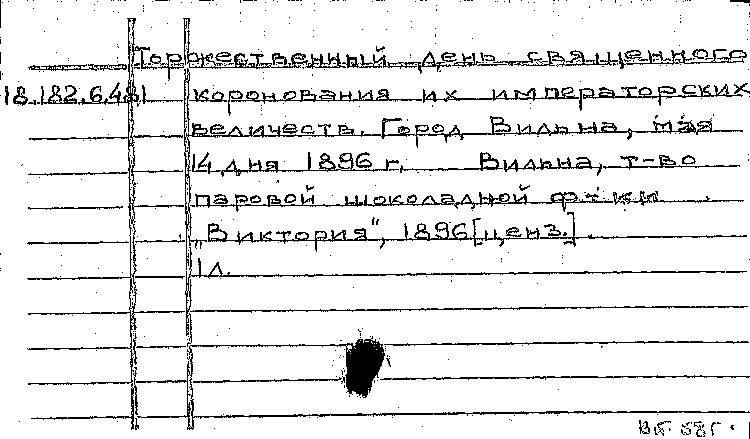 Торжественный день священного
18.182.6.481 коронования их императорских
величеств. Город Вильна, мая
14 дня 1896 г. Вильна, т-во
паровой шоколадной ф-ки
„Виктория", 1896 [ценз.].
1 л.